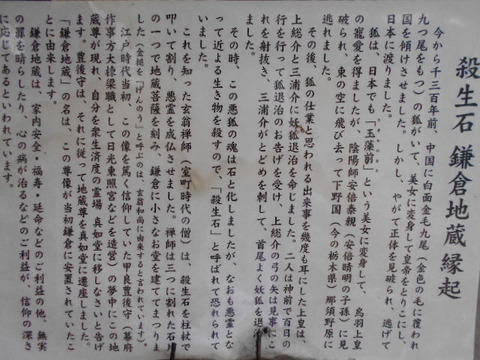 殺生石 鎌倉地蔵 縁起
今から千三百年前、中国に白面金毛九尾(金色の毛に覆われ
九つ尾をもつ)の狐がいて、美女に変身して皇帝をとりこにし、
国を傾けさせました。しかし、やがて正体を見破られ、逃げて
日本に渡りました。
狐は、日本でも「玉藻前」という美女に変身して、鳥羽上皇
の寵愛を得ましたが、陰陽師安倍泰親(安倍晴明の子孫)に見
破られ、東の空に飛び去って下野国(今の栃木県)那須野原に
逃れました。
その後、狐の仕業と思われる出来事を幾度も耳にした上皇は、
上総介と三浦介に妖狐退治を命じました。二人は神前で百日の
行を行って狐退治のお告げを受け、上総介の弓の矢は見事にこ
れを射抜き、三浦介がとどめを刺して、首尾よく妖狐を退治
しました。
その時、この悪狐の魂は石と化しましたが、なおも悪霊とな
って近よる生き物を殺すので、「殺生石」と呼ばれて恐れられて
いました。
これを知った玄翁禅師(室町時代の僧)は、殺生石を杖で
叩いて割り、悪霊を成仏させました。禅師は三つに割れた石
の一つで地蔵菩薩を刻み、鎌倉に小さなお堂を建ててまつりま
した(金槌を「げんのう」と呼ぶのは、玄翁和尚に由来すると言われています)。
江戸時代当初、この像を篤く信仰していた甲良豊後守(幕府
作事方大棟梁職として日光東照宮などを造営)の夢中にこの地
蔵尊が現れ、自分を衆生済度の霊場 真如堂に移しなさいと告げ
ます。豊後守は、それに従って地蔵尊を真如堂に遷座しました。
「鎌倉地蔵」の名は、この尊像が当初鎌倉に安置されていたこ
とに由来します。
鎌倉地蔵は、家内安全・福寿・延命などのご利益の他、無実
の罪を晴らしたり、心の病が治るなどのご利益が、信仰の深さ
に応じてあるといわれています。